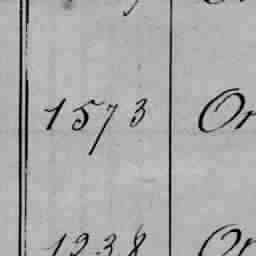 1573 Or
1238 Or